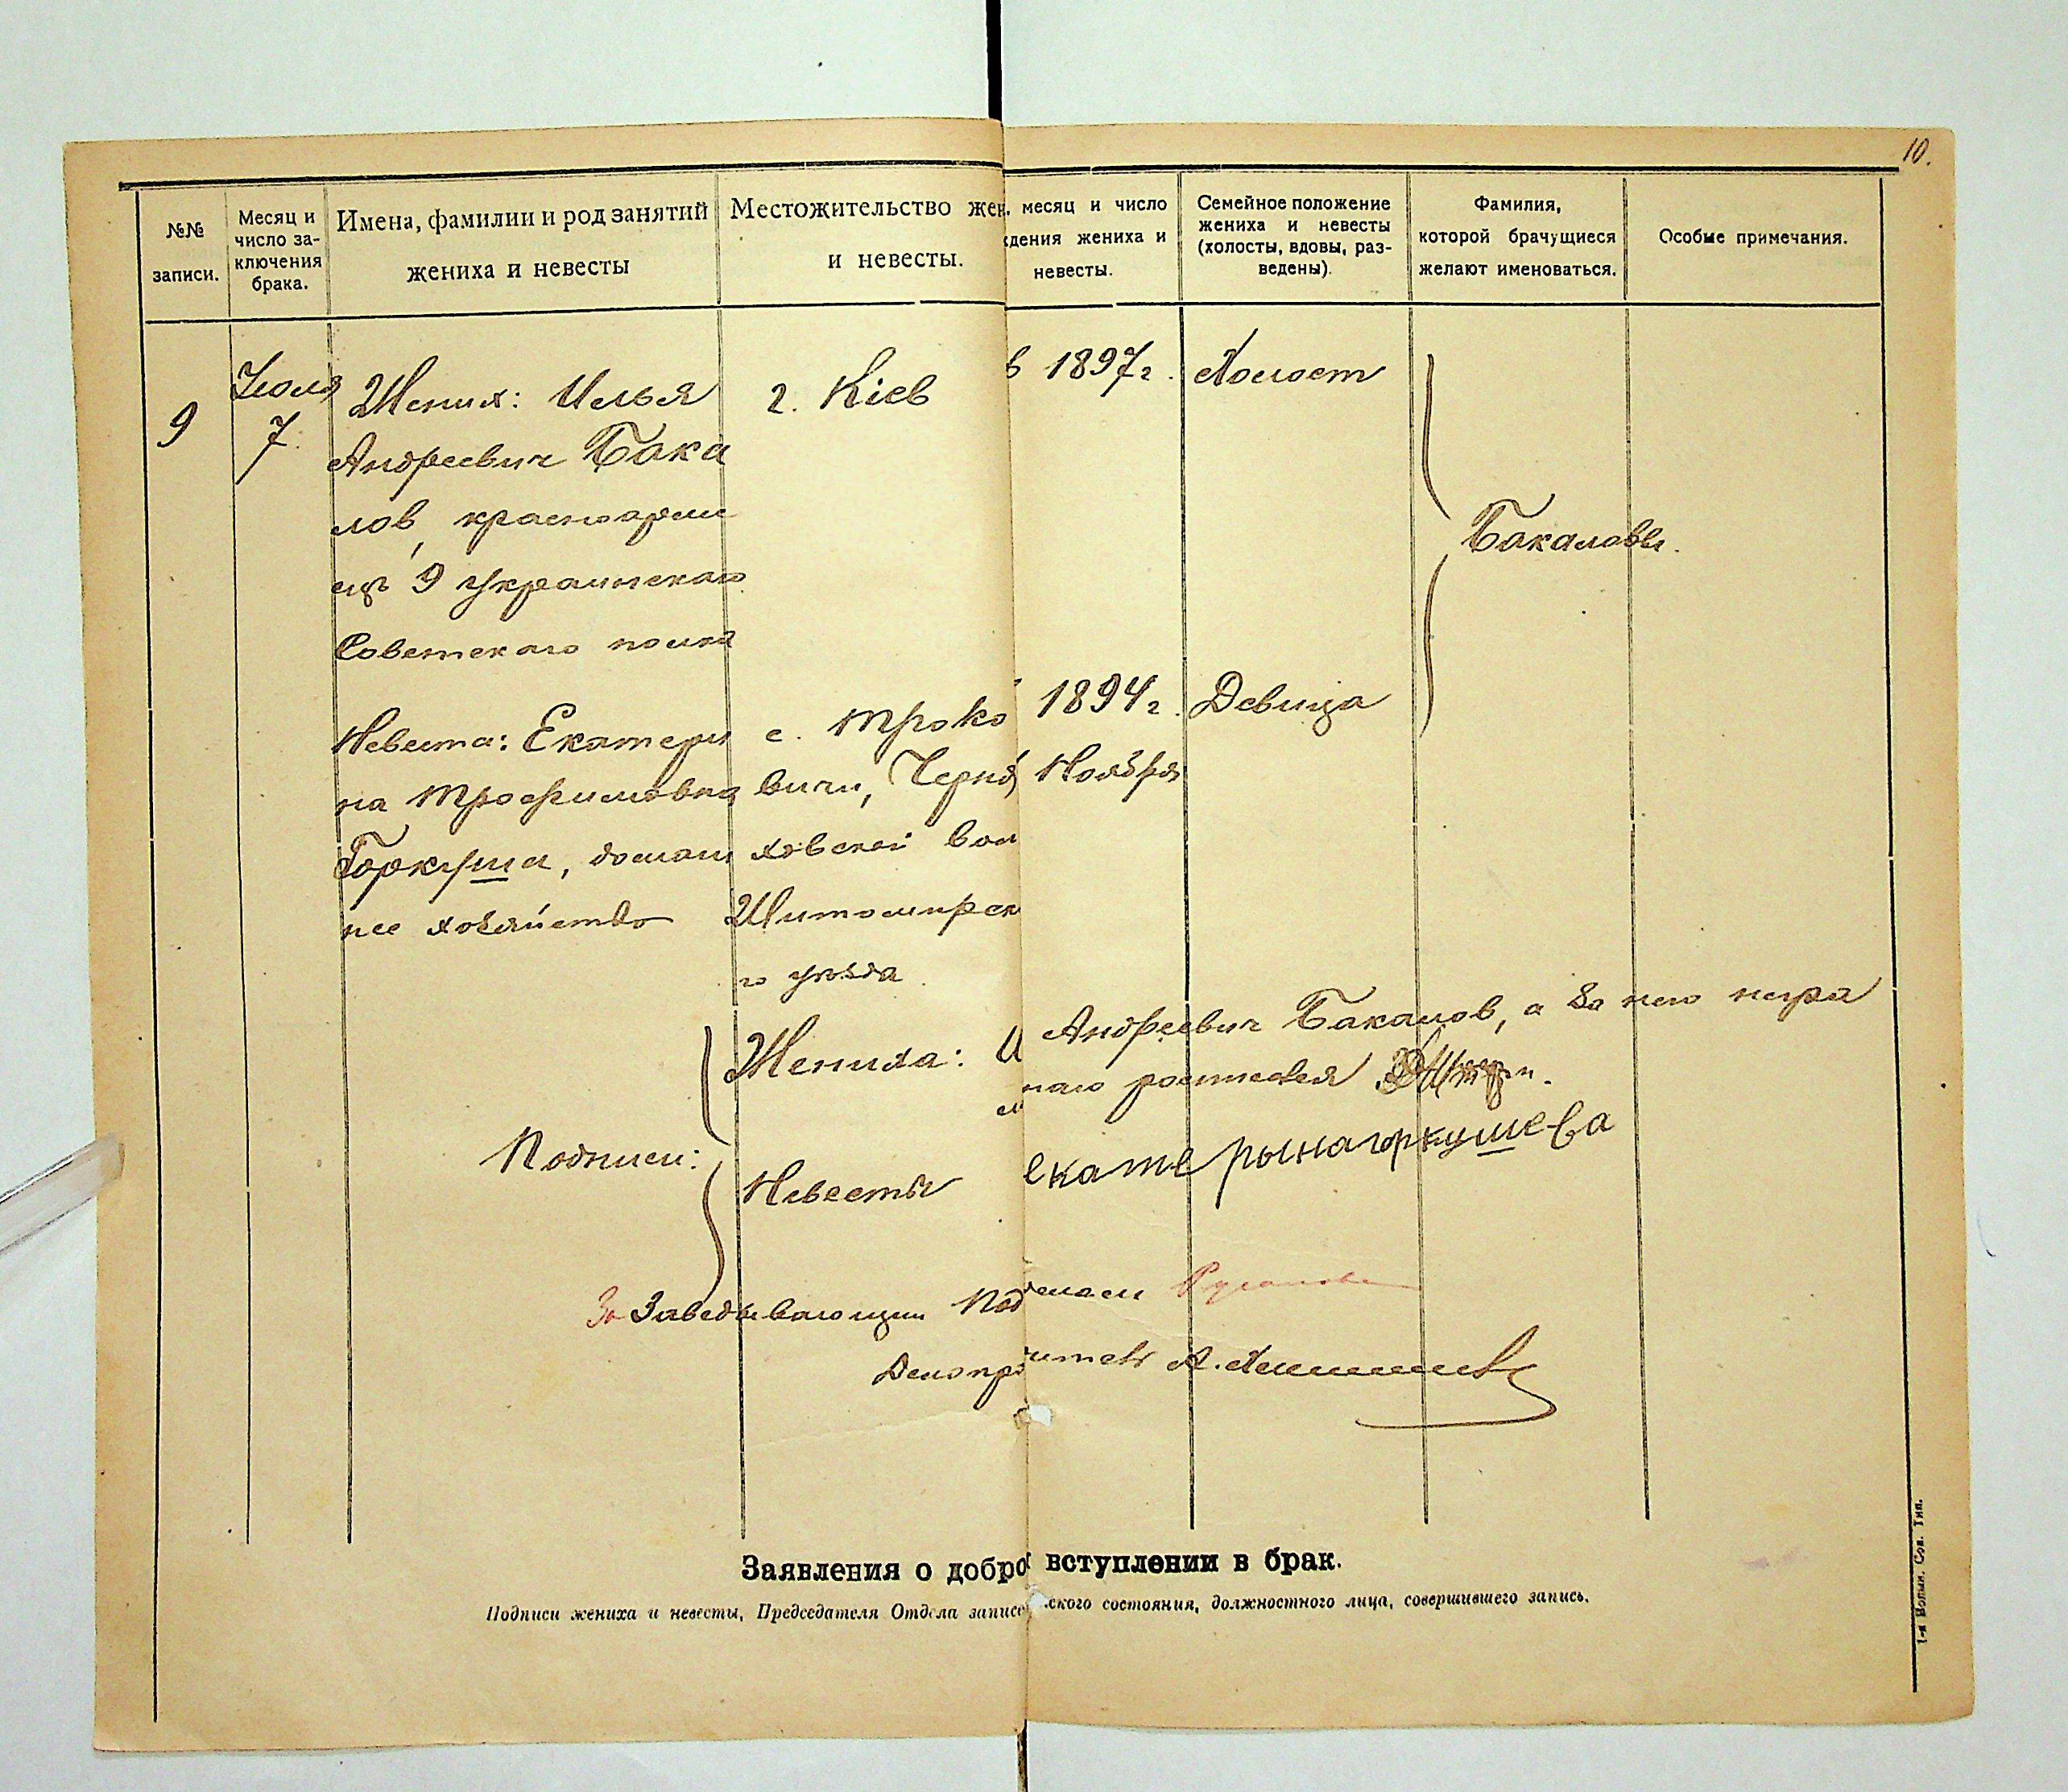 10.
№№ записи.
Месяц и число заключения брака.
Имена, фамилии и род занятий жениха и невесты
Местожительство жен
и невесты.
. месяц и число
дения жениха и
невесты.
Семейное положение жениха и невесты (холосты, вдовы, разведены).
Фамилия, которой брачущиеся желают именоваться.
Особые примечания.
9
Июля
7
Жених: Илья
Андреевич Бака
лов, красноарме
ец 9 Украинскаго
Советскаго полка
г. Кіев
в 1897г.
Холост
Бакаловы.
Невеста: Екатери
на Трофимовна
Горкуша, домаш
нее хозяйство
с. Троко
вичи, Черня
ховской вол
Житомирск
го уезда
1894г.
Ноября
Девица
Подписи:
Жениха: И
Андреевич Бакалов, а за него негра
наго росписался
Невесты
екатерынагоркушева
За Заведывающий Под
делом
Делопро
итель А.
Заявления о добро
вступлении в брак.
Подписи жениха и невесты, Председателя Отдела записе
ского состояния, должностного лица, совершившего запись.
1-я Волын. Сов. Тип.